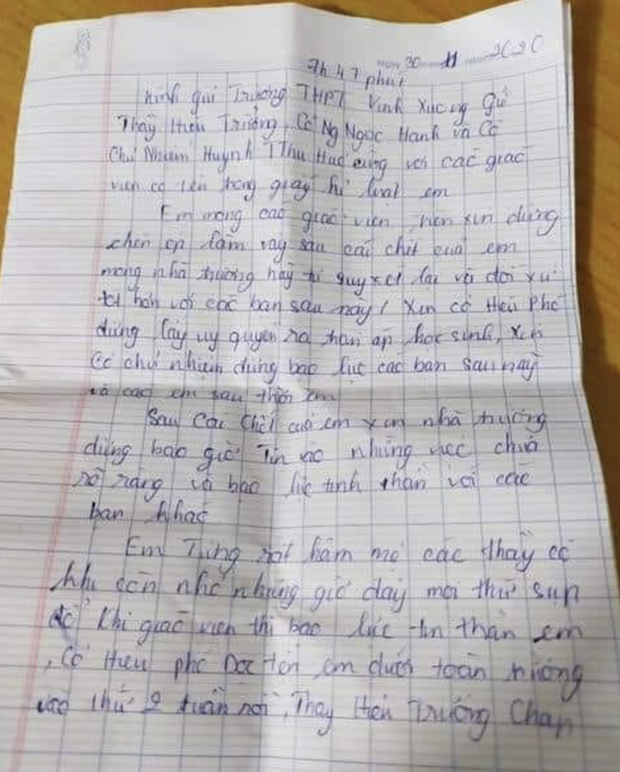 7h 47 phút Ngày 30 tháng 11 năm 2020
Kính gửi Trường THPT Vĩnh Xương gửi
Thầy Hiệu Trưởng, Cô Ng Ngọc Hạnh và Cô
Chủ Nhiệm Huỳnh T Thu Huệ cùng với các giáo
viên có tên trong giấy kỉ luật em
Em mong các giáo viên nên xin dừng
chèn ép lắm vậy sau cái chết của em
mong nhà trường hãy suy xét lại và đối xử
tốt hơn với các bạn sau này! Xin cô Hiệu Phó
đừng lấy uy quyền ra chèn áp học sinh, xin
cô chủ nhiệm đừng bạo lực các bạn sau này
và các em sau thời em
Sau Cái Chết của em xin nhà trường
đừng bao giờ Tin vào những việc chưa
rõ ràng và bạo lực tinh thần với các
bạn khác
Em Từng rất hâm mộ các thầy cô
khi còn nhỏ nhưng giờ đây mọi thứ sụp
đổ khi giáo viên thì bạo lực tin thần em
, Cô Hiệu phó Đọc tên em dưới toàn trường
vào thứ 2 tuần rồi, Thầy Hiệu Trưởng Chan